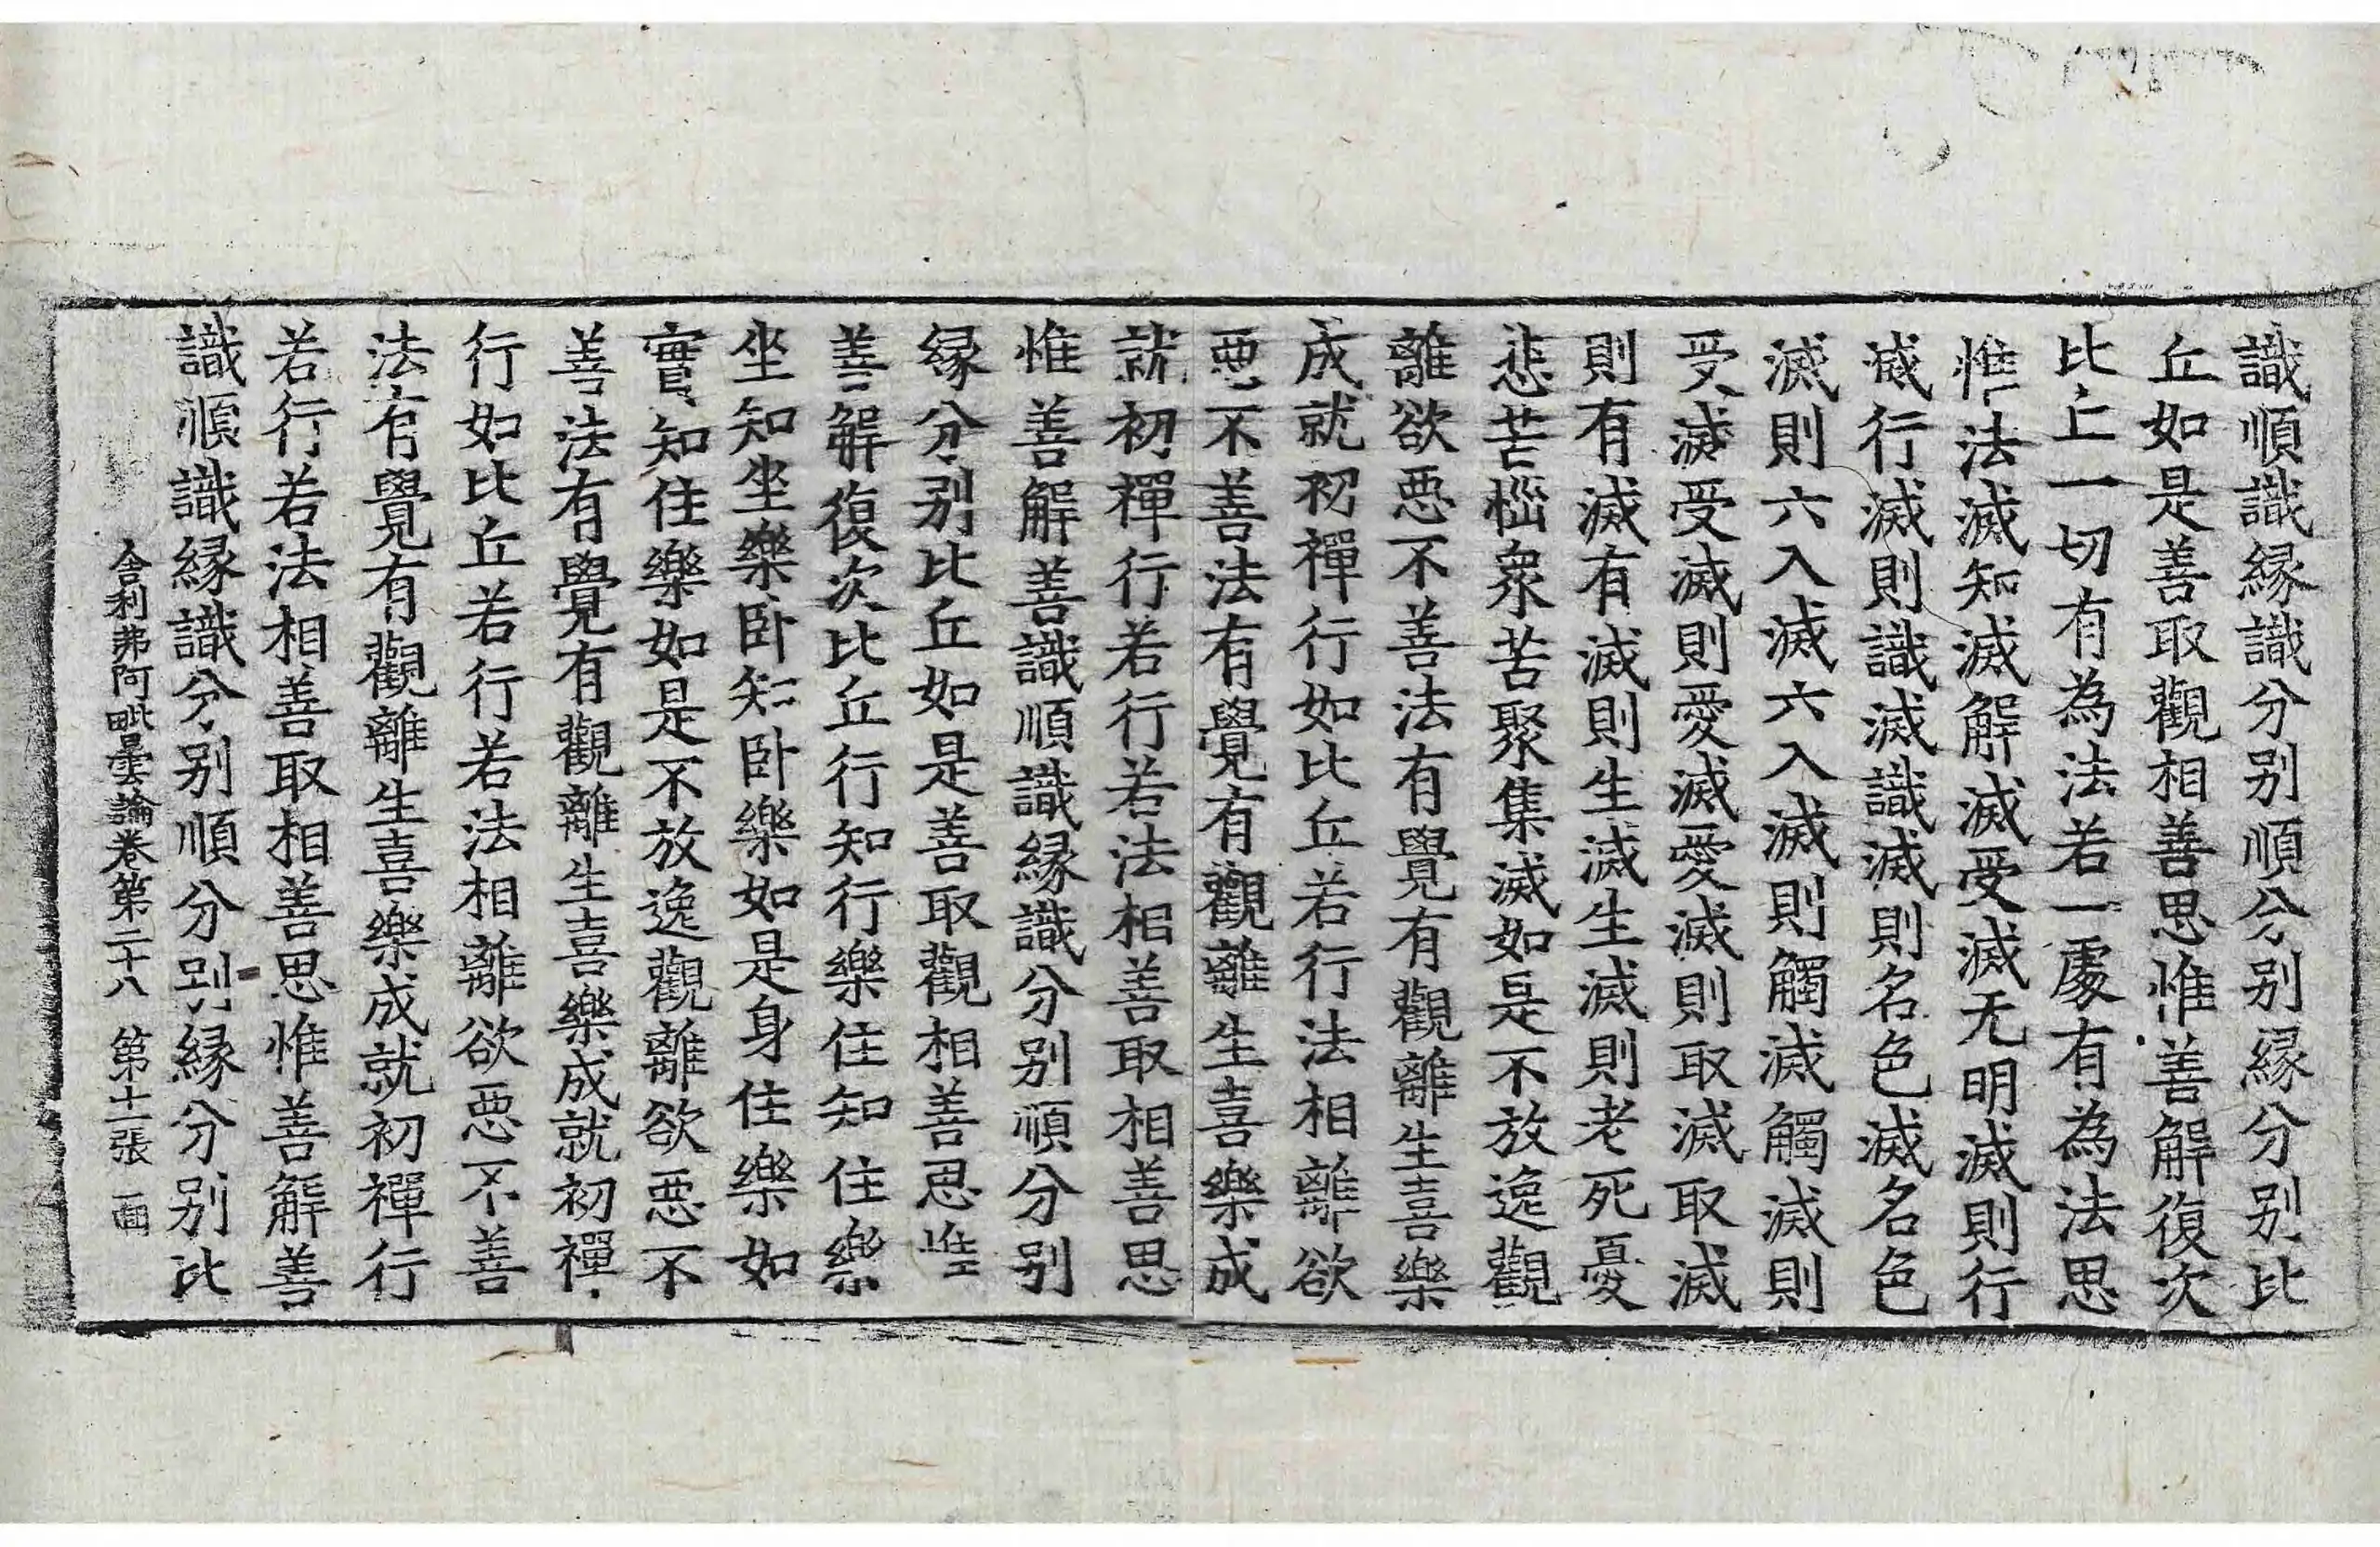 識順識緣識分别順分别緣分别比
丘如是善取觀相善思惟善解復次
比丘一切有為法若一處有為法思
惟法滅知滅解滅受滅无明滅則行
滅行滅則識滅識滅則名色滅名色
滅則六入滅六入滅則觸滅觸滅則
受滅受滅則愛滅愛滅則取滅取滅
則有滅有滅則生滅生滅則老死憂
悲苦惱衆苦聚集滅如是不放逸觀
離欲惡不善法有覺有觀離生喜樂
成就初禪行如比丘若行法相離欲
惡不善法有覺有觀離生喜樂成
就初禪行若行若法相善取相善思
惟善解善識順識緣識分别順分别
緣分别比丘如是善取觀相善思惟
善解復次比丘行知行樂住知住樂
坐知坐樂卧知卧樂如是身住樂如
實知住樂如是不放逸觀離欲惡不
善法有覺有觀離生喜樂成就初禪
行如比丘若行若法相離欲惡不善
法有覺有觀離生喜樂成就初禪行
若行若法相善取相善思惟善解善
識順識緣識分别順分别緣分别比
舍利弗阿毗曇論卷第二十八 第十一張 面